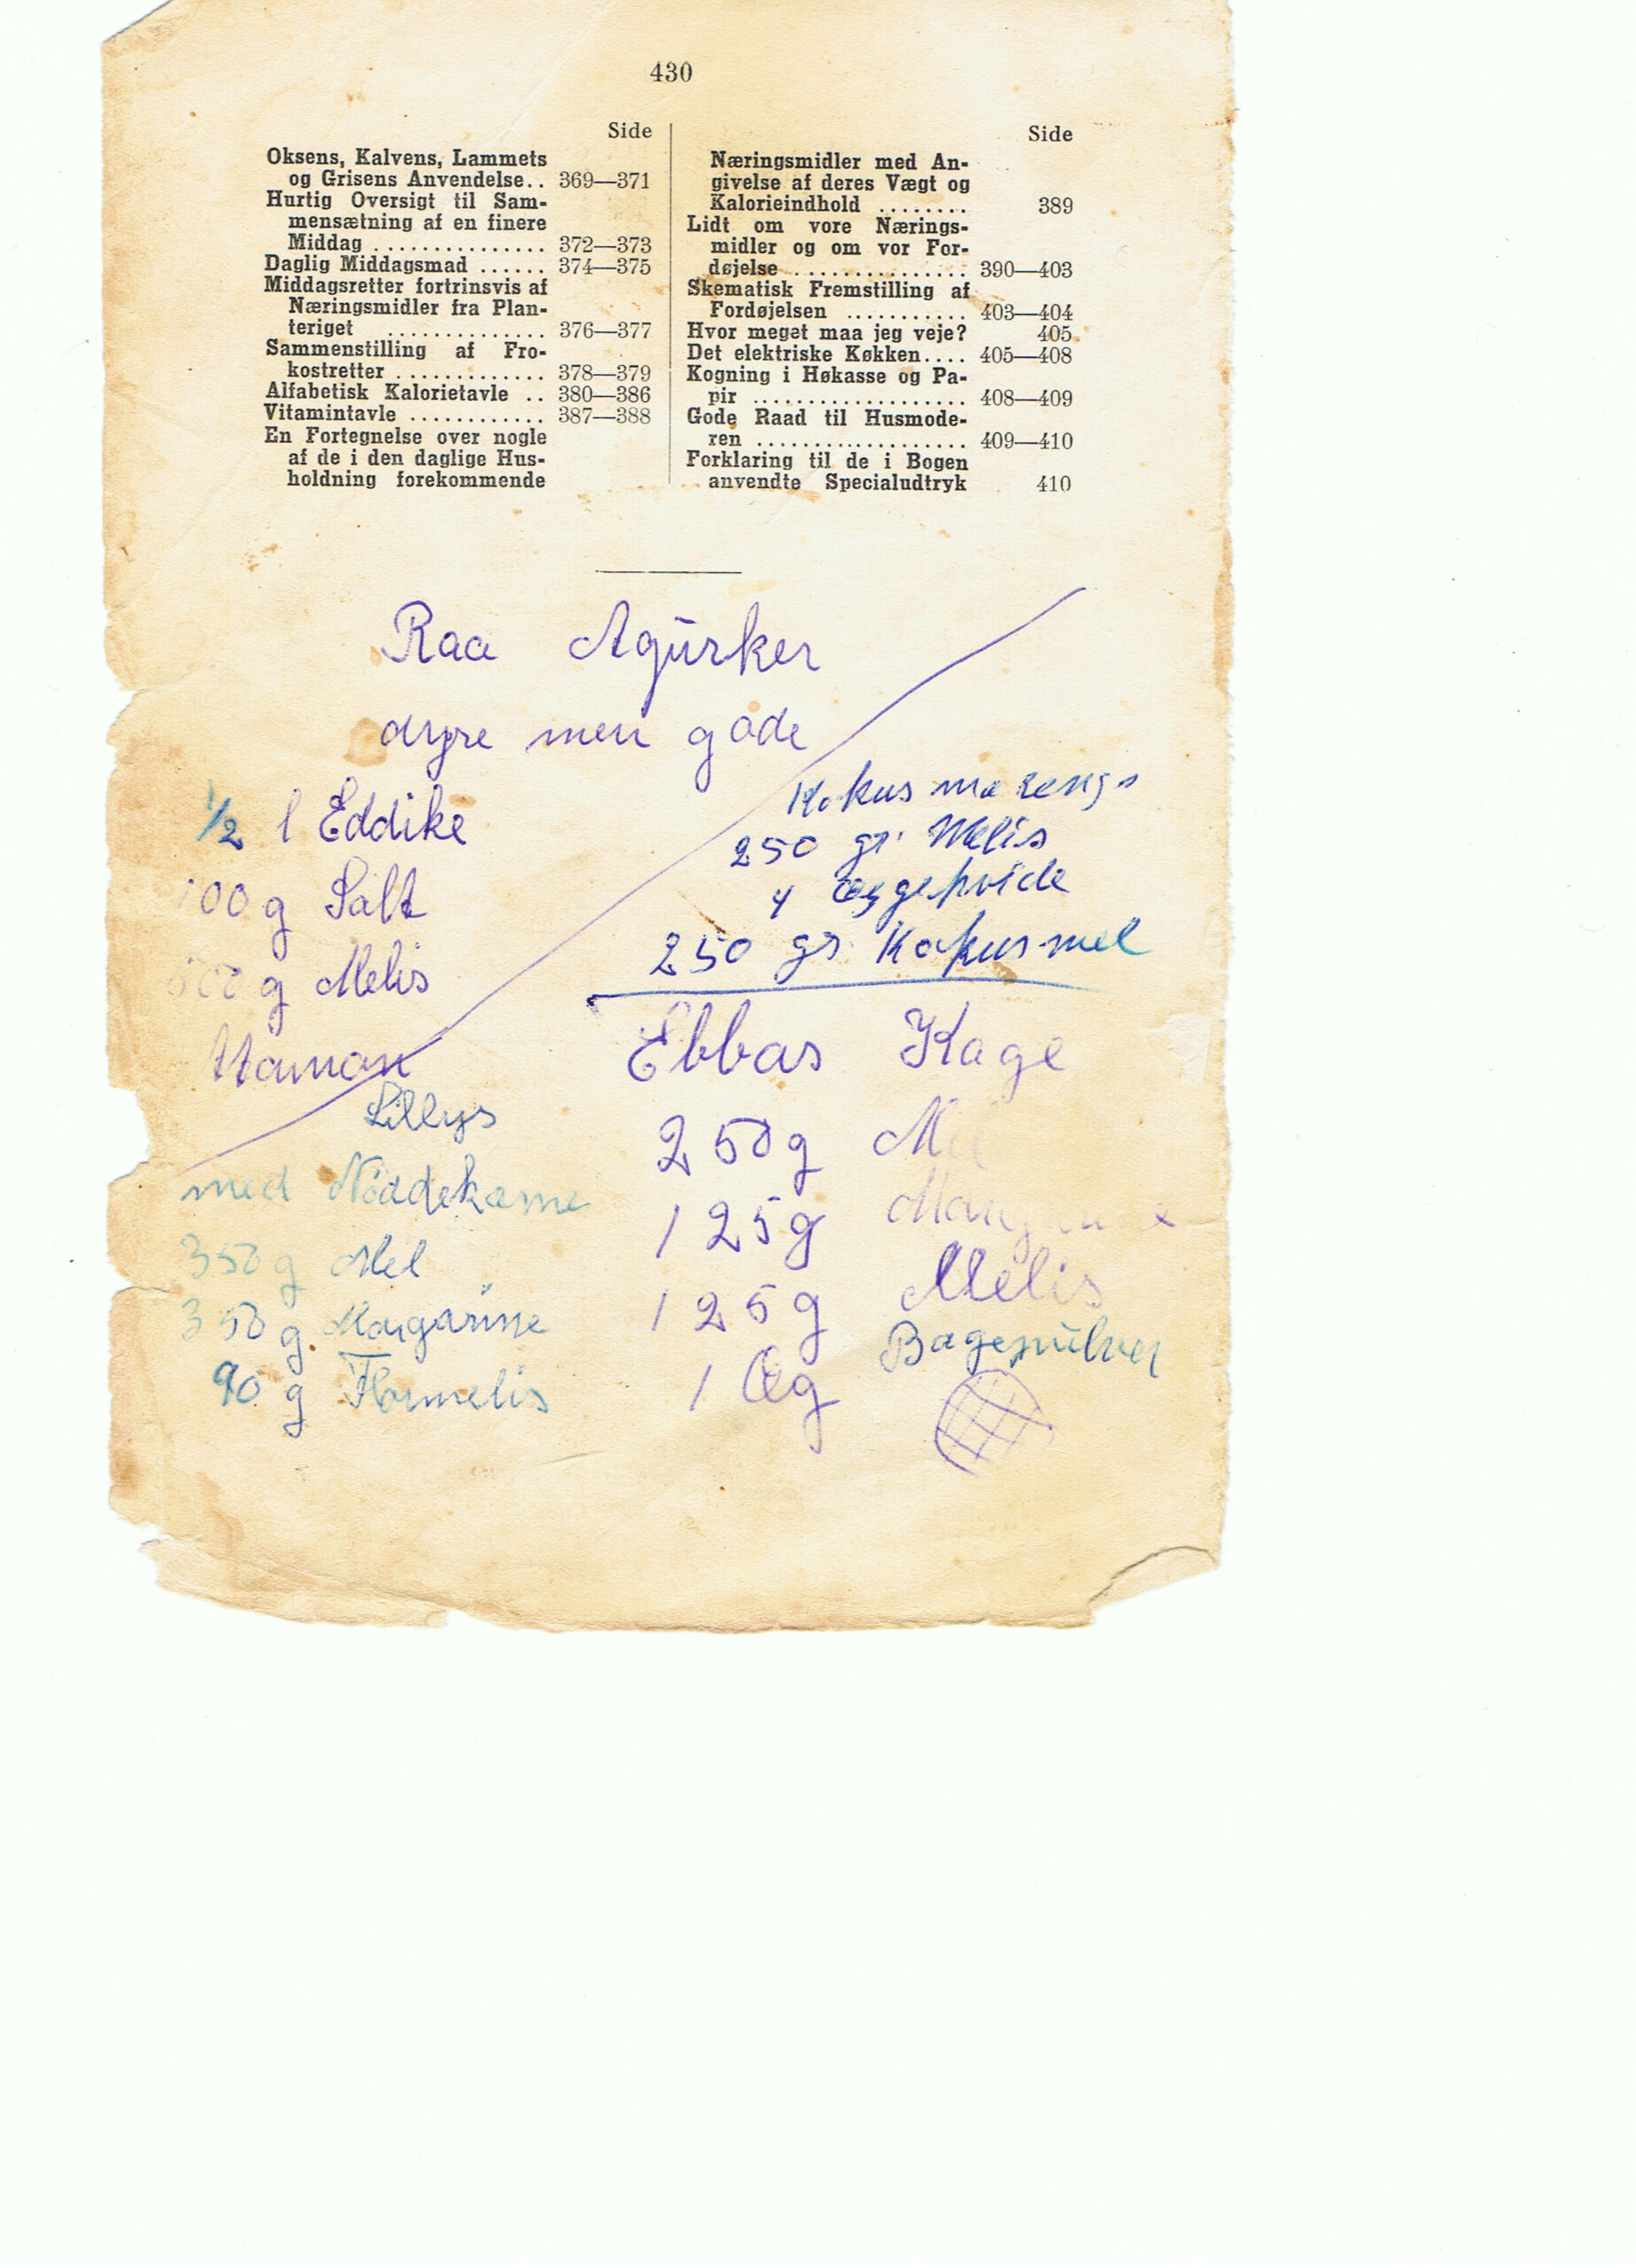 430
Side
Oksens, Kalvens, Lammets
og Grisens Anvendelse.. 369—371
Hurtig Oversigt til Sam-
mensætning af en finere
Middag ............... 372—373
Daglig Middagsmad ...... 374—375
Middagsretter fortrinsvis af
Næringsmidler fra Plan-
teriget .............. 376—377
Sammenstilling af Fro-
kostretter ............. 378—379
Alfabetisk Kalorietavle .. 380—386
Vitamintavle ............ 387—388
En Fortegnelse over nogle
af de i den daglige Hus-
holdning forekommende
Side
Næringsmidler med An-
givelse af deres Vægt og
Kalorieindhold ........ 389
Lidt om vore Nærings-
midler og om vor For-
døjelse ................ 390—403
Skematisk Fremstilling af
Fordøjelsen ........... 403—404
Hvor meget maa jeg veje? 405
Det elektriske Køkken.... 405—408
Kogning i Høkasse og Pa-
pir ................... 408—409
Gode Raad til Husmode-
ren ................... 409—410
Forklaring til de i Bogen
anvendte Specialudtryk 410
Raa Agurker
dyre men gode
1/2 l Eddike
100 g Salt
g Melis
Atamon
Kokus marengs
250 gr. Melis
4 Æggehvide
250 gr. Kokusmel
Ebbas Kage
250g Mel
125g Margarine
125g Melis
1 Æg Bagepulver
Lillys
med Nøddekærne
350g Mel
350 g. Margarine
90 g Flormelis